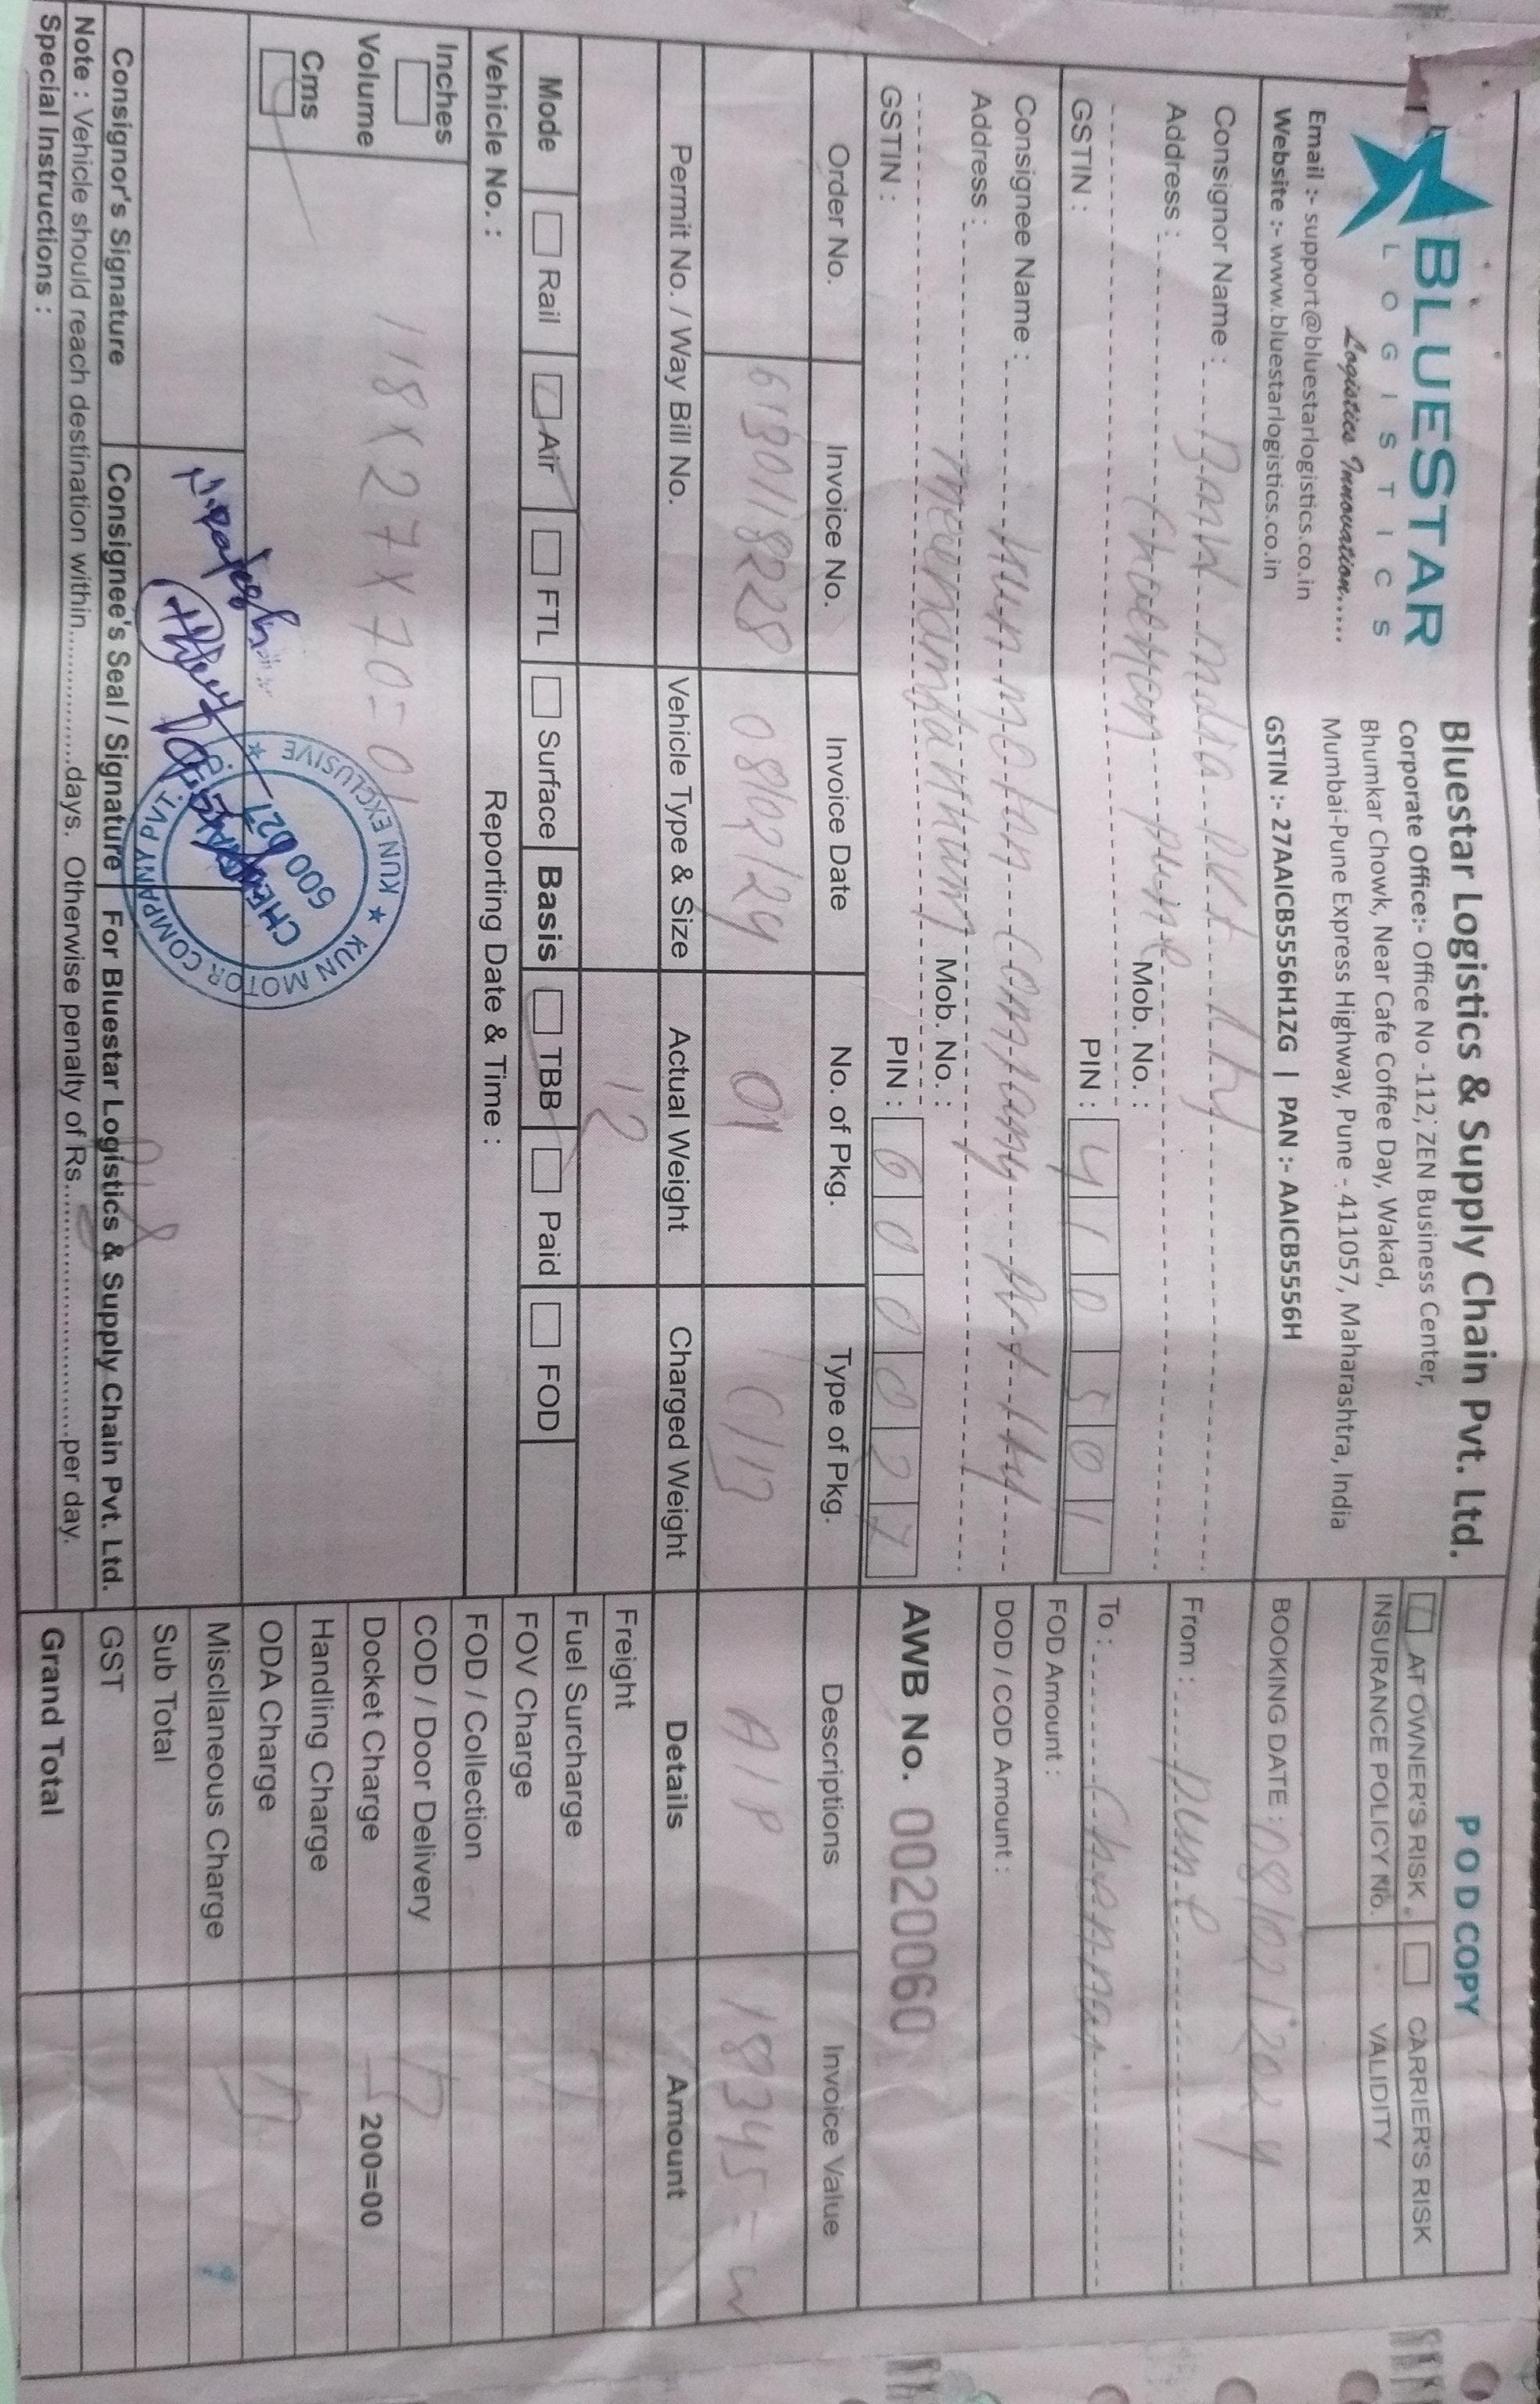 BLUESTAR
LOGISTICS
Logistics Innovation.....
Email :- support@bluestarlogistics.co.in
Website :- www.bluestarlogistics.co.in
Bluestar Logistics & Supply Chain Pvt. Ltd.
Corporate Office:- Office No -112, ZEN Business Center,
Bhumkar Chowk, Near Cafe Coffee Day, Wakad,
Mumbai-Pune Express Highway, Pune - 411057, Maharashtra, India
GSTIN :- 27AAICB5556H1ZG | PAN :- AAICB5556H
POD COPY
AT OWNER'S RISK CARRIER'S RISK
INSURANCE POLICY No. VALIDITY
BOOKING DATE : 08/02/2024
From : pune
To : Chennai
FOD Amount :
DOD / COD Amount :
AWB No. 0020060
Consignor Name : BMW India pvt
Address : pune
Mob. No. :
GSTIN : PIN : 410501
Consignee Name : Kun company pvt
Address :
Mob. No. :
GSTIN : PIN : 600027
Order No. Invoice No. Invoice Date No. of Pkg. Type of Pkg. Descriptions Invoice Value
6130118228 08/02/24 01 C/B A/P 18345=
Permit No. / Way Bill No. Vehicle Type & Size Actual Weight Charged Weight Details Amount
12
Mode Rail Air FTL Surface Basis TBB Paid FOD
Vehicle No. : Reporting Date & Time :
Inches
Volume
Cms
118X27X70=01
Freight
Fuel Surcharge
FOV Charge
FOD / Collection
COD / Door Delivery
Docket Charge 200=00
Handling Charge
ODA Charge
Miscllaneous Charge
Sub Total
GST
Grand Total
N.Rajesh
KUN EXCLUSIVE ★ KUN MOTOR COMPANY PVT. LTD. ★
CHENNAI
600 027
Consignor's Signature Consignee's Seal / Signature For Bluestar Logistics & Supply Chain Pvt. Ltd.
Note : Vehicle should reach destination within................days. Otherwise penalty of Rs..............................per day.
Special Instructions :